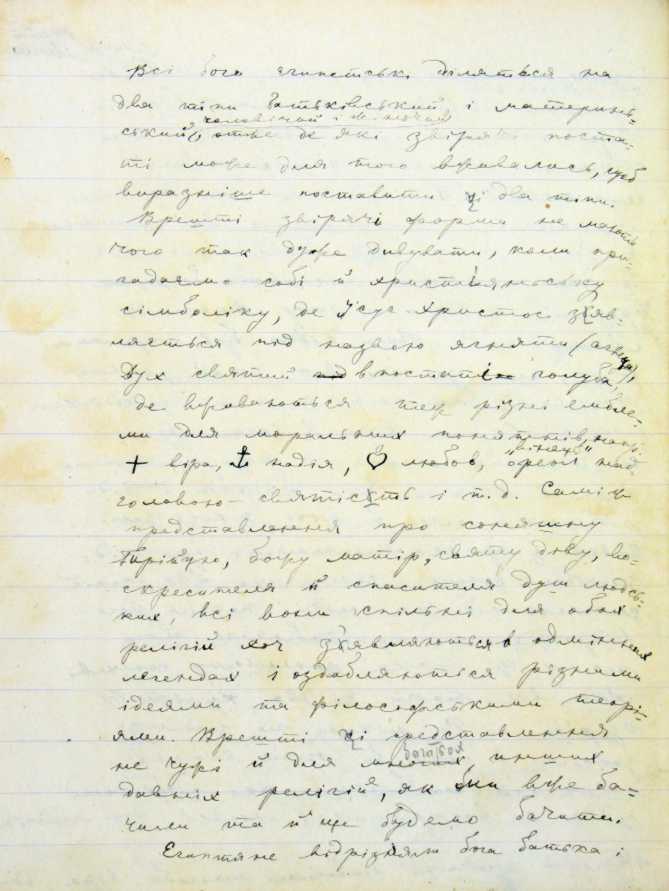 Всі боги египетські діляться на
два типи батьківський, і материнь-
чоловічий і жіночий
ський, отже де які звірячі поста-
ті може для того вживались, щоб
виразніше поставити ці два типи.
Врешті звірячі форми не мають
чого так дуже дивувати, коли при-
гадаємо собі й християнську
сімболіку, де Ісус Христос зʼяв-
ляється під назвою ягняти (агнця),
Дух святий в постаті голуба,
де вживаються теж різні ембле-
ми для моральних понятків, напр.
+ віра, ⚓ надія, ♡ любов, ореол над
"вінець"
головою – святість і т.д. Самі ж
представлення про соняшну
Трійцю, божу матір, святу діву, во-
скресителя й спасителя душ людсь-
ких, всі вони спільні для обох
релігій хоч зʼявляються в одмінних
легендах і оздабляються різними
ідеями та філософськими теорі-
ями. Врешті ці представлення
багатьох
не чужі й для многих инших
давніх релігій, як ми вже ба-
чили та й ще будемо бачити.
Египтяне відрізняли бога батька і